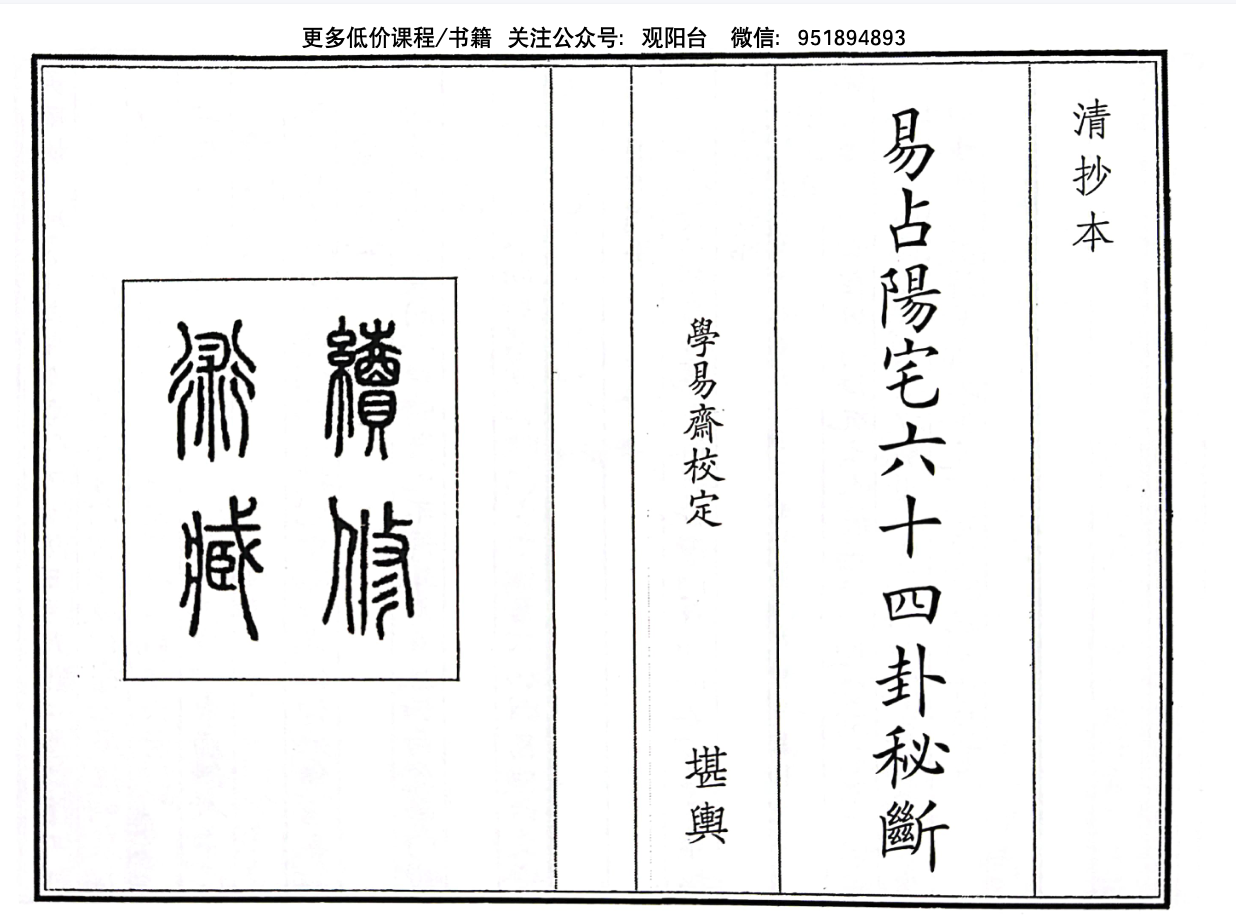 更多低价课程/书籍 关注公众号: 观阳台 微信: 951894893
清抄本
易占陽宅六十四卦秘斷
學易齋校定 堪輿
續修
術藏